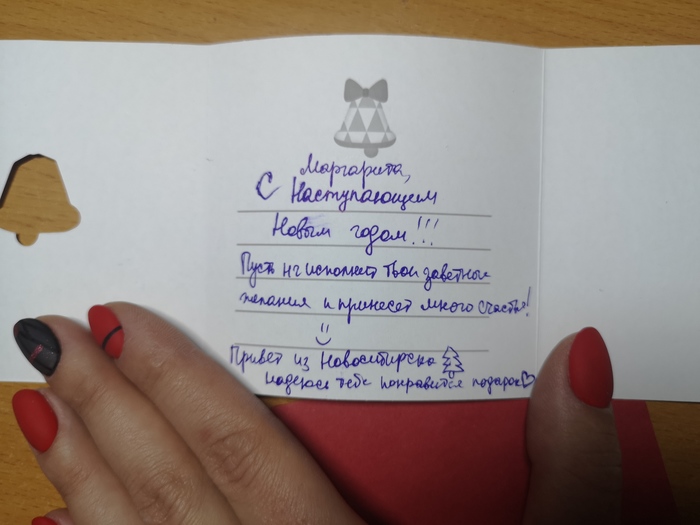 Маргарита,
С Наступающим
Новым годом!!!
Пусть нг исполнит твои заветные
желания и принесет много счастья!
Привет из Новосибирска
надеюсь тебе понравится подарок